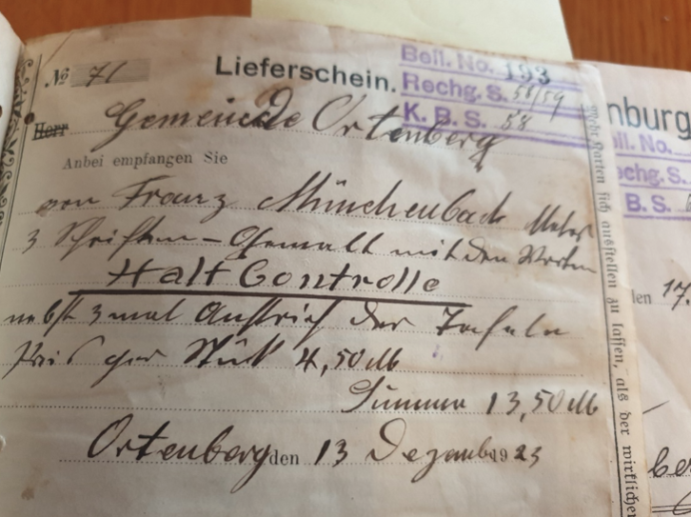 № 71
Lieferschein.
Beil. No. 193
Rechg. S. 58/59
K. B. S. 58
Herr Gemeinde Ortenberg
Anbei empfangen Sie
von Franz Münchenbach Maler
3 Schriften - Gemalt mit den Worten
Halt Controlle
nebst 3 mal Anstrich der Tafeln
Preis per Stück 4,50 M
Summa 13,50 M
Ortenberg den 13 Dezemb 1923
Karten sich ausstellen zu lassen, als der wirklichen
nburg
eil. No.
echg. S.
B. S.
den 17.